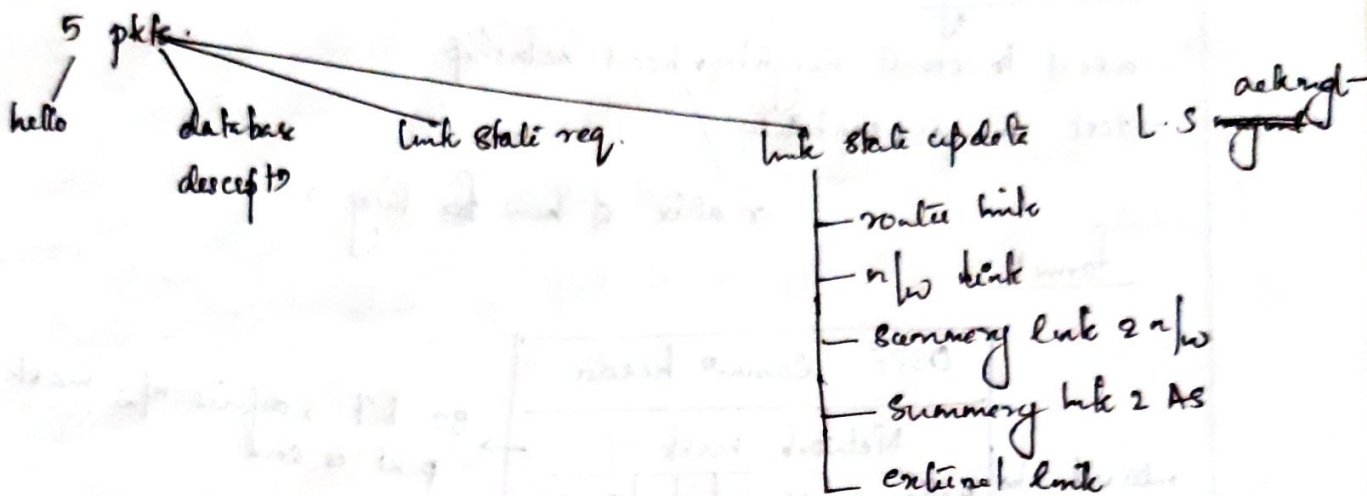 5 pkts.
hello
database
descript
link state req.
link state update
L.S ackngt
router link
n/w link
summery link 2 n/w
summery link 2 AS
external link